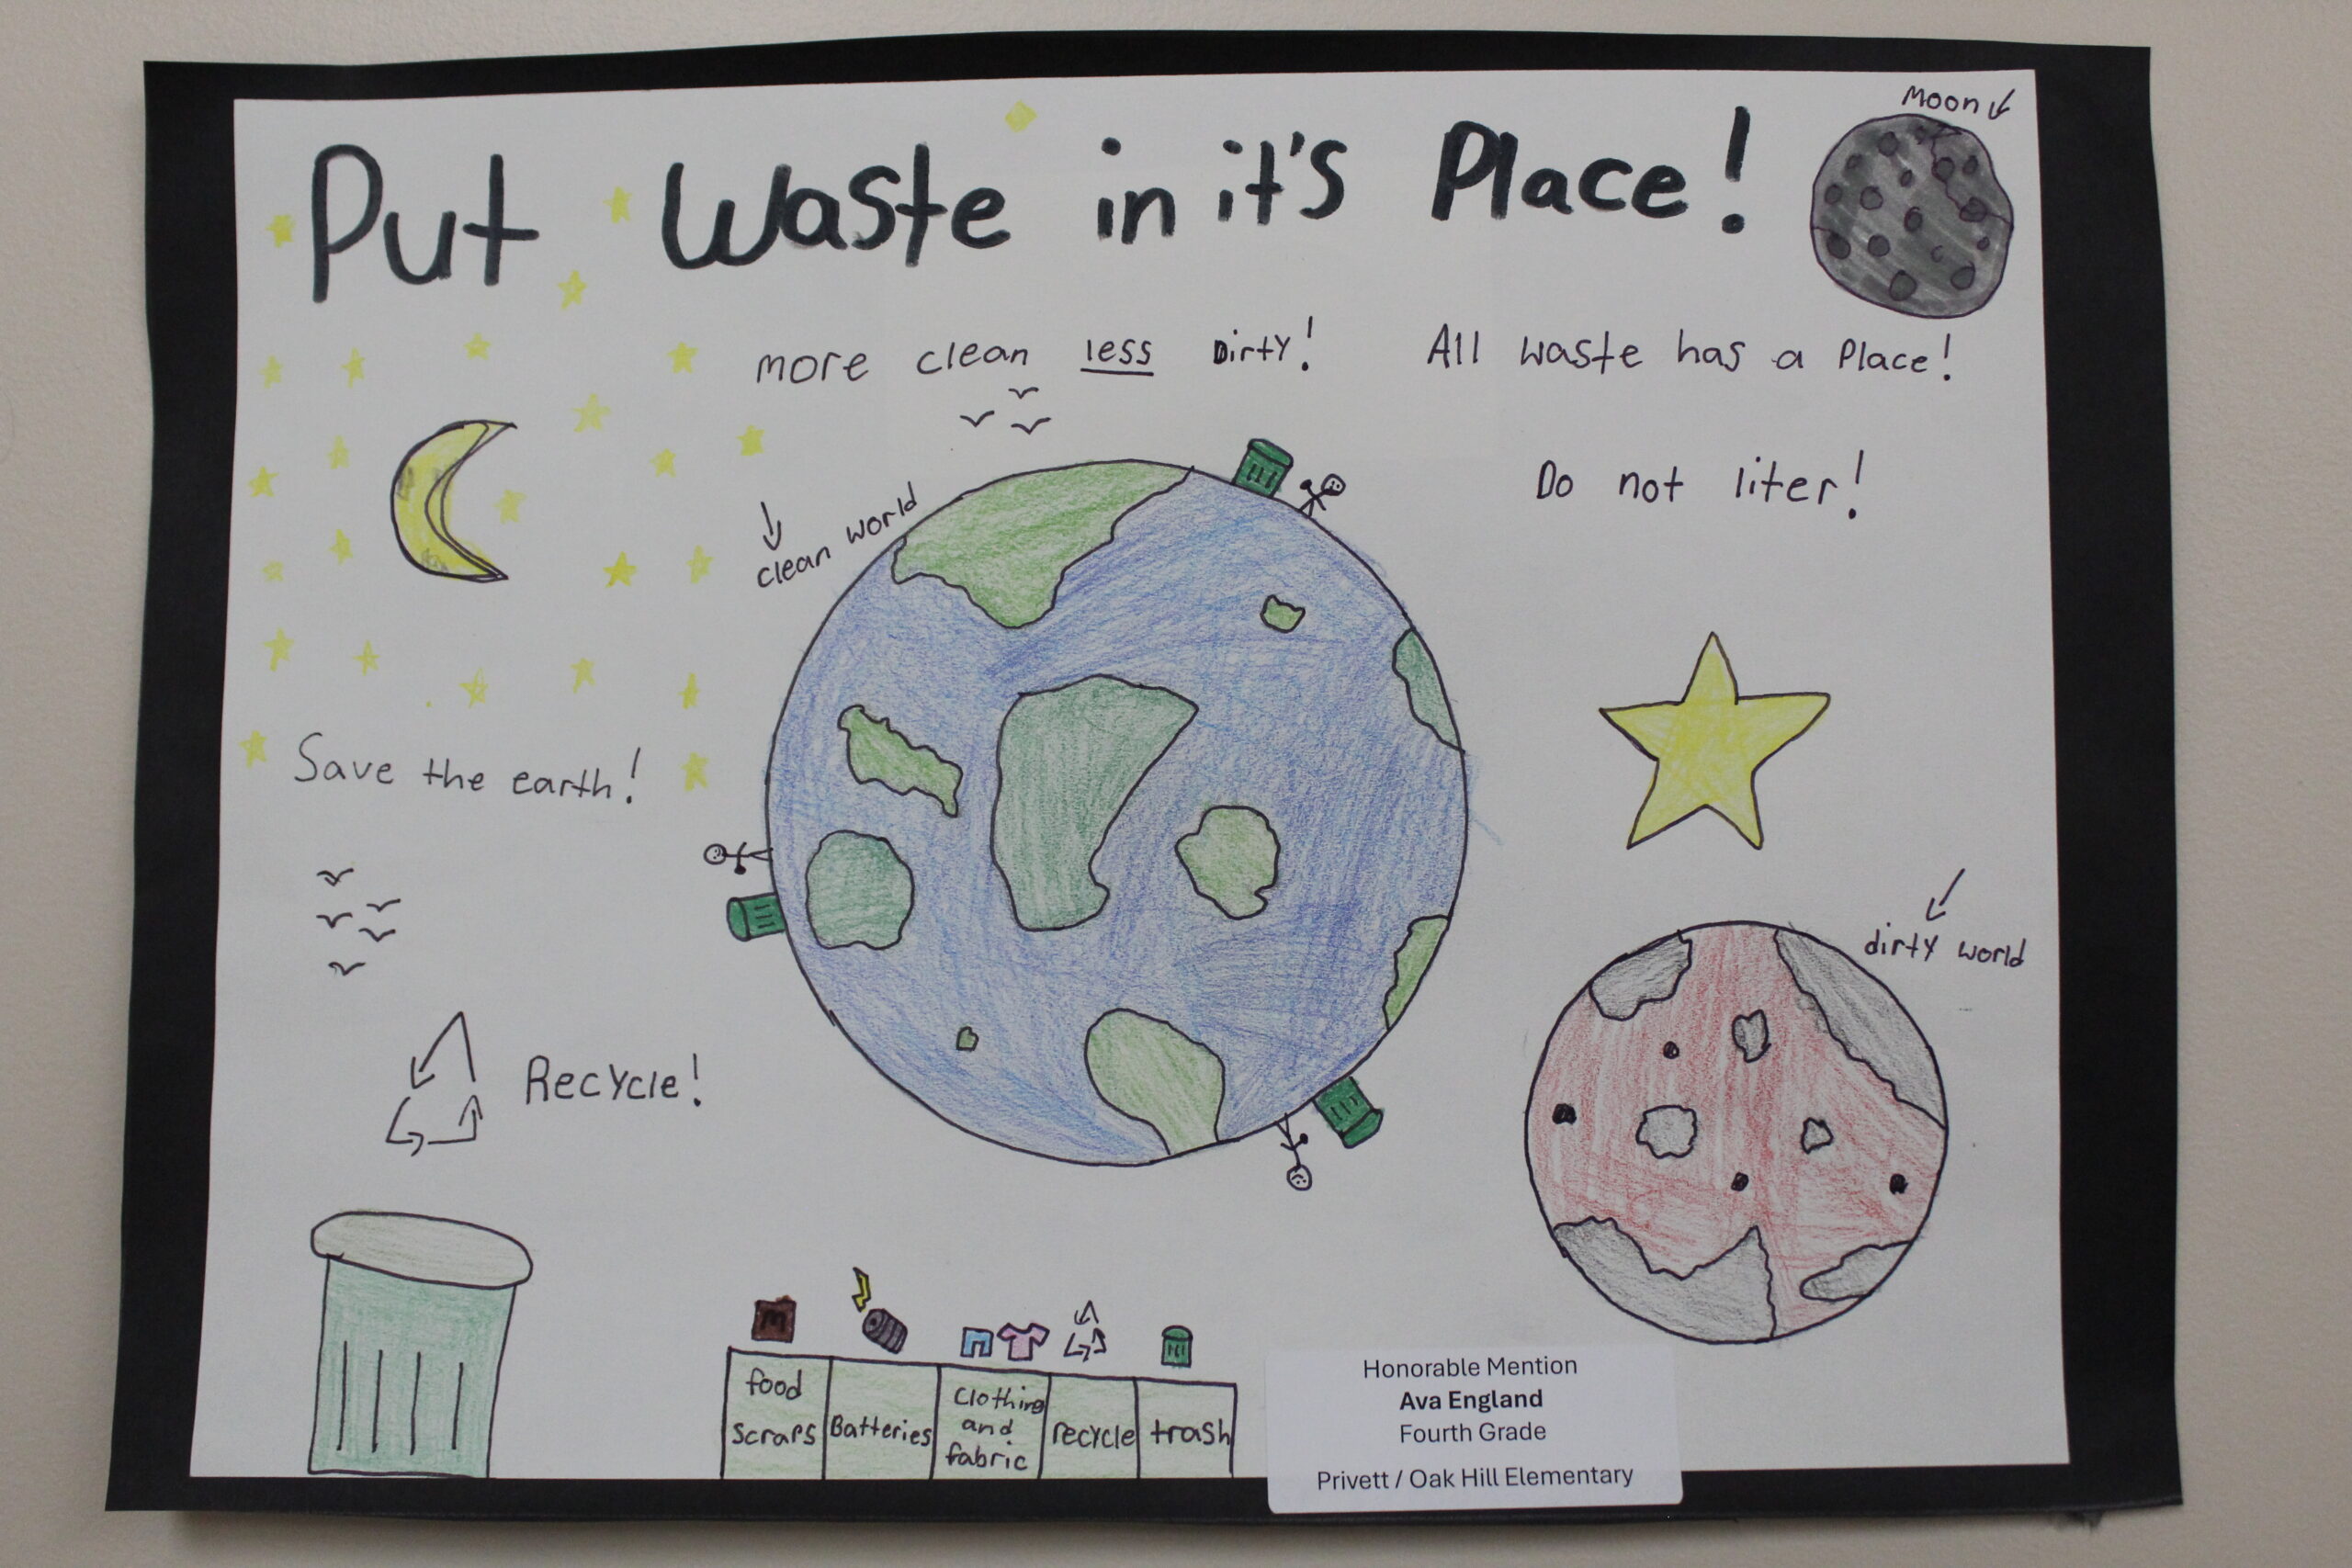 Moon
Put Waste in it's Place!
more clean less Dirty!
All waste has a Place!
Do not liter!
clean world
Save the earth!
dirty world
Recycle!
food
scraps
Batteries
Clothing
and
fabric
recycle
trash
Honorable Mention
Ava England
Fourth Grade
Privett / Oak Hill Elementary